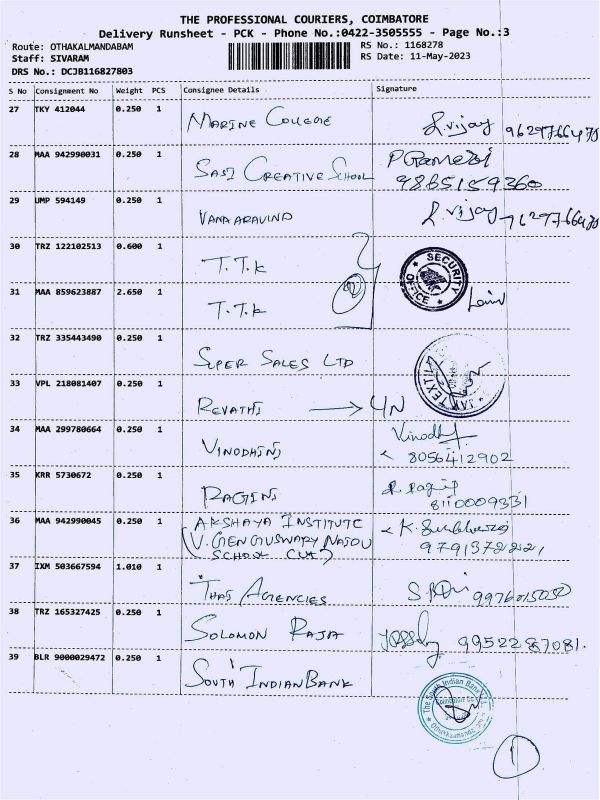 THE PROFESSIONAL COURIERS, COIMBATORE
Delivery Runsheet - PCK - Phone No.:0422-3505555 - Page No.:3
Route: OTHAKALMANDABAM
RS No.: 1168278
Staff: SIVARAM
RS Date: 11-May-2023
DRS No.: DCJB116827803
S No Consignment No Weight PCS Consignee Details Signature
27 TKY 412044 0.250 1 MARINE COLLEGE
28 MAA 942990031 0.250 1 SASI CREATIVE SCHOOL
9865159360
29 UMP 594149 0.250 1 VANA ARAVIND
30 TRZ 122102513 0.600 1 T.T.K
SECURITY OFFICE
31 MAA 859623887 2.650 1 T.T.K
32 TRZ 335443490 0.250 1 SUPER SALES LTD
33 VPL 218081407 0.250 1 REVATHI
34 MAA 299780664 0.250 1 VINODHINI
8056412902
35 KRR 5730672 0.250 1 RAGINI
36 MAA 942990045 0.250 1 AKSHAYA INSTITUTE
37 IXM 503667594 1.010 1 THAJ AGENCIES
38 TRZ 165327425 0.250 1 SOLOMON RAJA
9952287081.
39 BLR 9000029472 0.250 1 SOUTH INDIAN BANK
The South Indian Bank
1